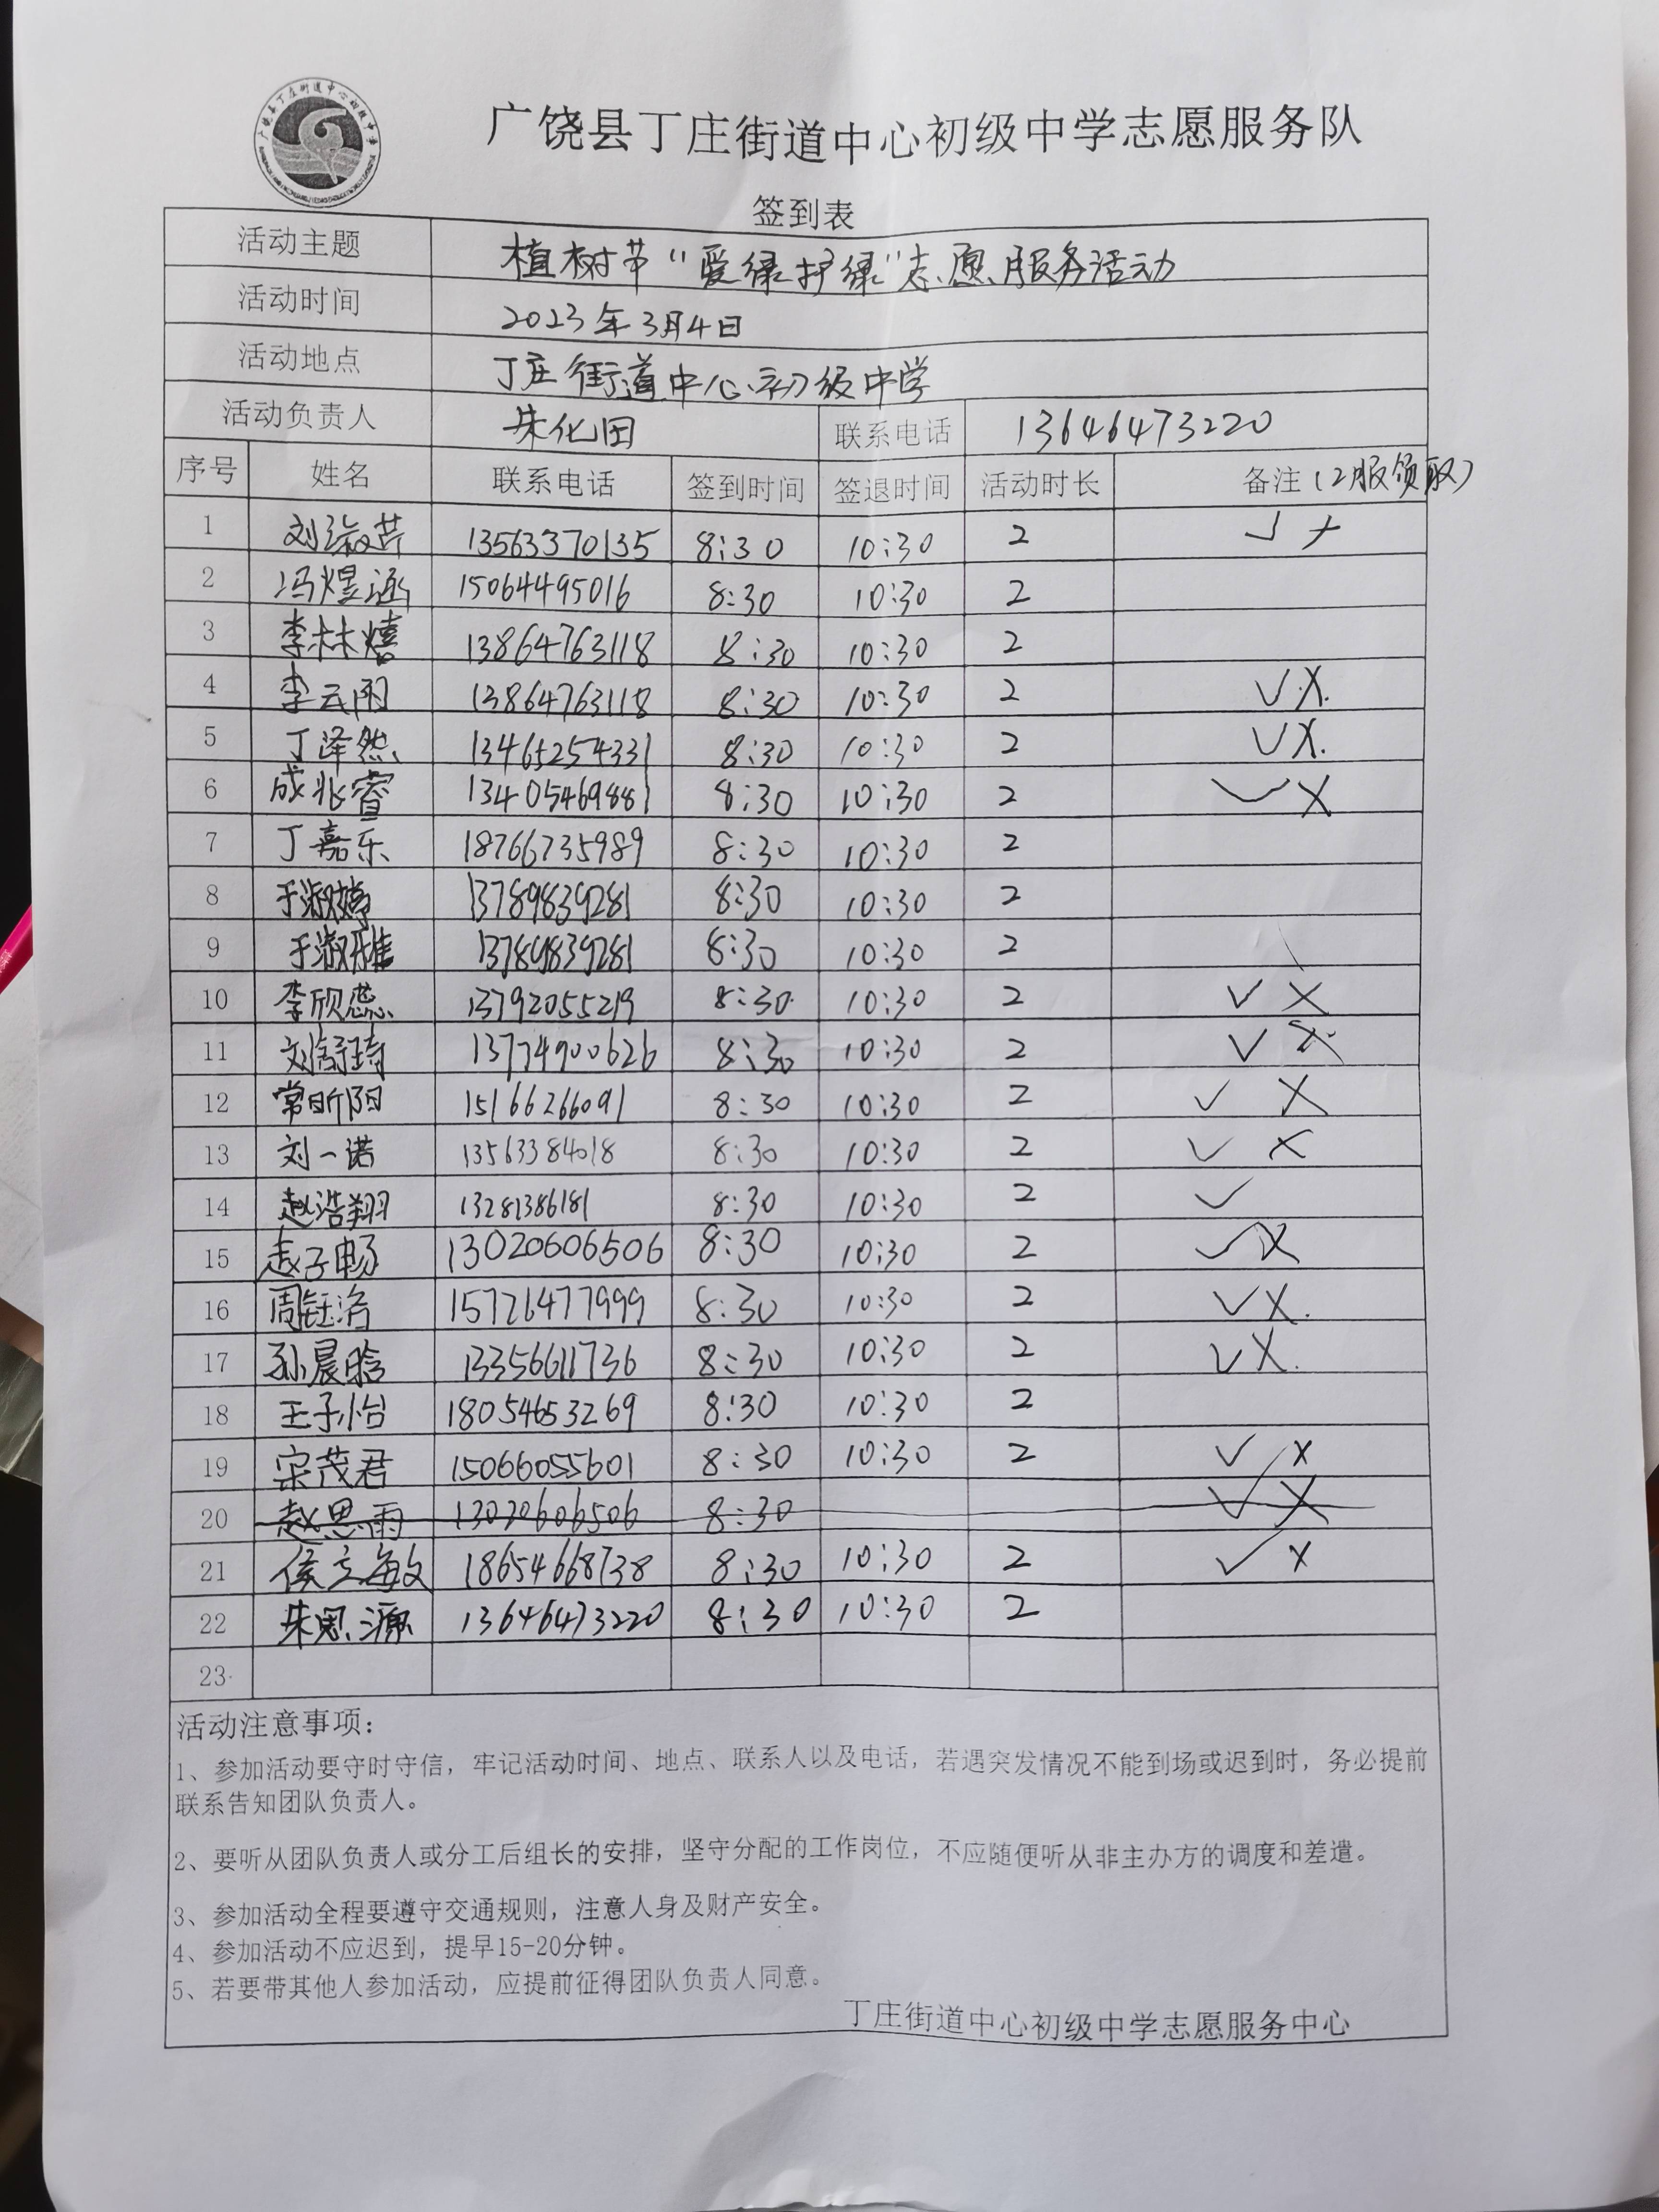 广饶县丁庄街道中心初级中学
广饶县丁庄街道中心初级中学志愿服务队
签到表
活动主题 植树节“爱绿护绿”志愿服务活动
活动时间 2023年3月4日
活动地点 丁庄街道中心初级中学
活动负责人 朱化田 联系电话 13646473220
序号 姓名 联系电话 签到时间 签退时间 活动时长 备注(2服领取)
1 刘淑芹 13563370135 8:30 10:30 2 ✓ ×
2 冯煜涵 15064495016 8:30 10:30 2
3 李林熺 13864763118 8:30 10:30 2
4 李云雨 13864763118 8:30 10:30 2 ✓ ×
5 丁泽然 13465254331 8:30 10:30 2 ✓ ×
6 成兆睿 13405469881 8:30 10:30 2 ✓ ×
7 丁嘉乐 18766735989 8:30 10:30 2
8 于淑婷 13789839281 8:30 10:30 2
9 于淑雅 13789839281 8:30 10:30 2
10 李欣蕊 13792055219 8:30 10:30 2 ✓ ×
11 刘舒琦 13774900626 8:30 10:30 2 ✓ ×
12 常昕阳 15166266091 8:30 10:30 2 ✓ ×
13 刘一诺 13563384018 8:30 10:30 2 ✓ ×
14 赵浩翔 13281386181 8:30 10:30 2 ✓
15 赵子畅 13020606506 8:30 10:30 2 ✓ ×
16 周钰洺 15726477999 8:30 10:30 2 ✓ ×
17 孙晨晗 13356611736 8:30 10:30 2 ✓ ×
18 王子怡 18054653269 8:30 10:30 2
19 宗茂君 15066055601 8:30 10:30 2 ✓ ×
20 赵思雨 13020606506 8:30 ✓ ×
21 侯立敏 18654668738 8:30 10:30 2 ✓ ×
22 朱思源 13646473220 8:30 10:30 2
23
活动注意事项：
1、参加活动要守时守信，牢记活动时间、地点、联系人以及电话，若遇突发情况不能到场或迟到时，务必提前
联系告知团队负责人。
2、要听从团队负责人或分工后组长的安排，坚守分配的工作岗位，不应随便听从非主办方的调度和差遣。
3、参加活动全程要遵守交通规则，注意人身及财产安全。
4、参加活动不应迟到，提早15-20分钟。
5、若要带其他人参加活动，应提前征得团队负责人同意。
丁庄街道中心初级中学志愿服务中心